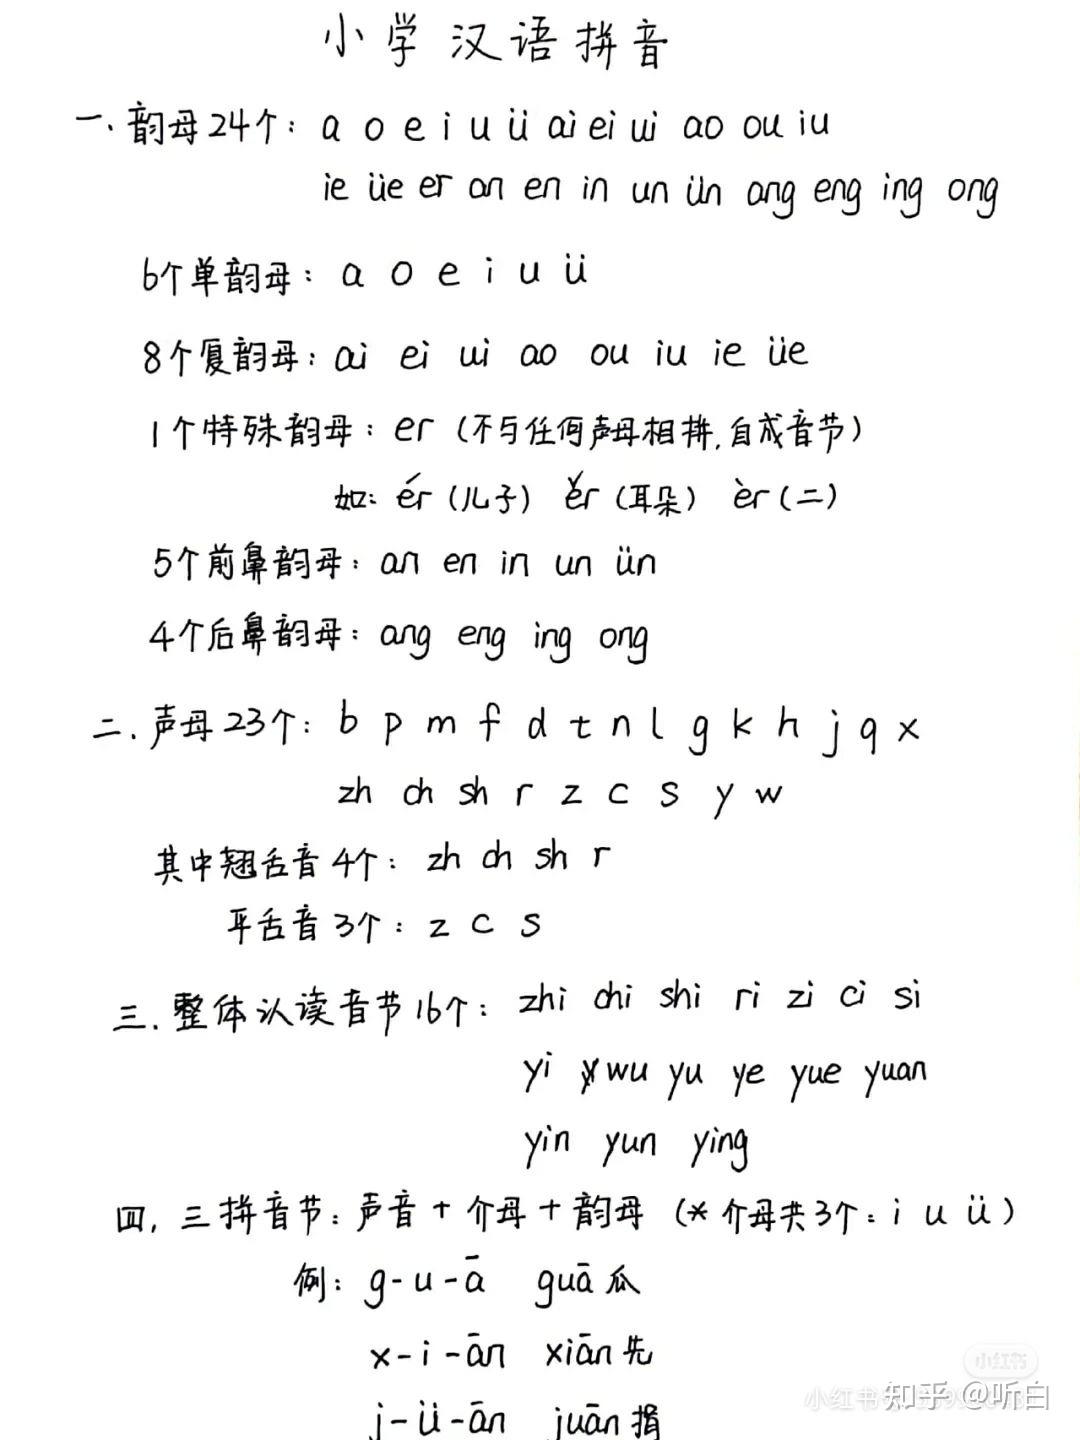 小学汉语拼音
一.韵母24个: a o e i u ü ai ei ui ao ou iu
ie üe er an en in un ün ang eng ing ong
6个单韵母: a o e i u ü
8个复韵母: ai ei ui ao ou iu ie üe
1个特殊韵母: er (不与任何声母相拼,自成音节)
如: ér (儿子) ěr (耳朵) èr (二)
5个前鼻韵母: an en in un ün
4个后鼻韵母: ang eng ing ong
二.声母23个: b p m f d t n l g k h j q x
zh ch sh r z c s y w
其中翘舌音4个: zh ch sh r
平舌音3个: z c s
三.整体认读音节16个: zhi chi shi ri zi ci si
yi wu yu ye yue yuan
yin yun ying
四.三拼音节: 声音+介母+韵母 (*介母共3个: i u ü)
例: g-u-ā guā瓜
x-i-ān xiān先
j-ü-ān juān捐
小红书
知乎 @听白
小红书